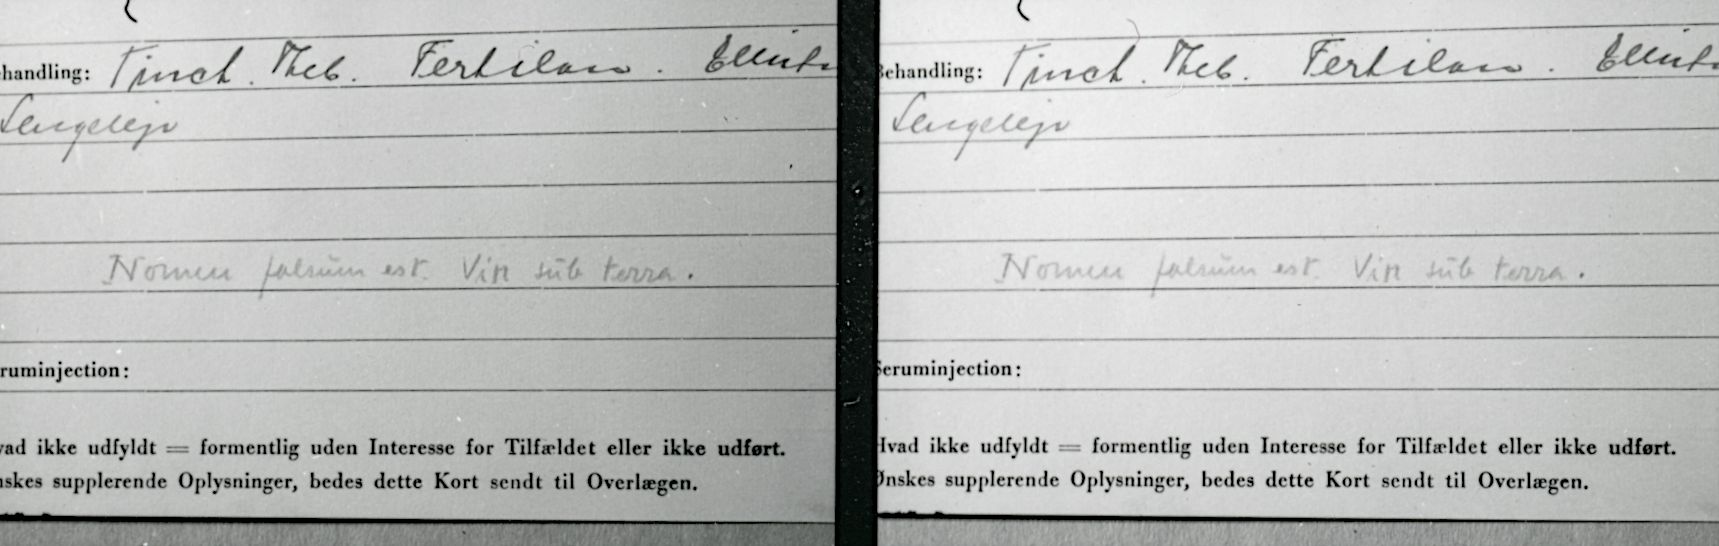 ehandling: Tinct. Theb. Fertilan. 
Sengeleje
Nomen falsum est. Vir sub terra.
ruminjection:
vad ikke udfyldt = formentlig uden Interesse for Tilfældet eller ikke udført.
nskes supplerende Oplysninger, bedes dette Kort sendt til Overlægen.
Behandling: Tinct. Theb. Fertilan.
Sengeleje
Nomen falsum est. Vir sub terra.
Seruminjection:
Hvad ikke udfyldt = formentlig uden Interesse for Tilfældet eller ikke udført.
Ønskes supplerende Oplysninger, bedes dette Kort sendt til Overlægen.